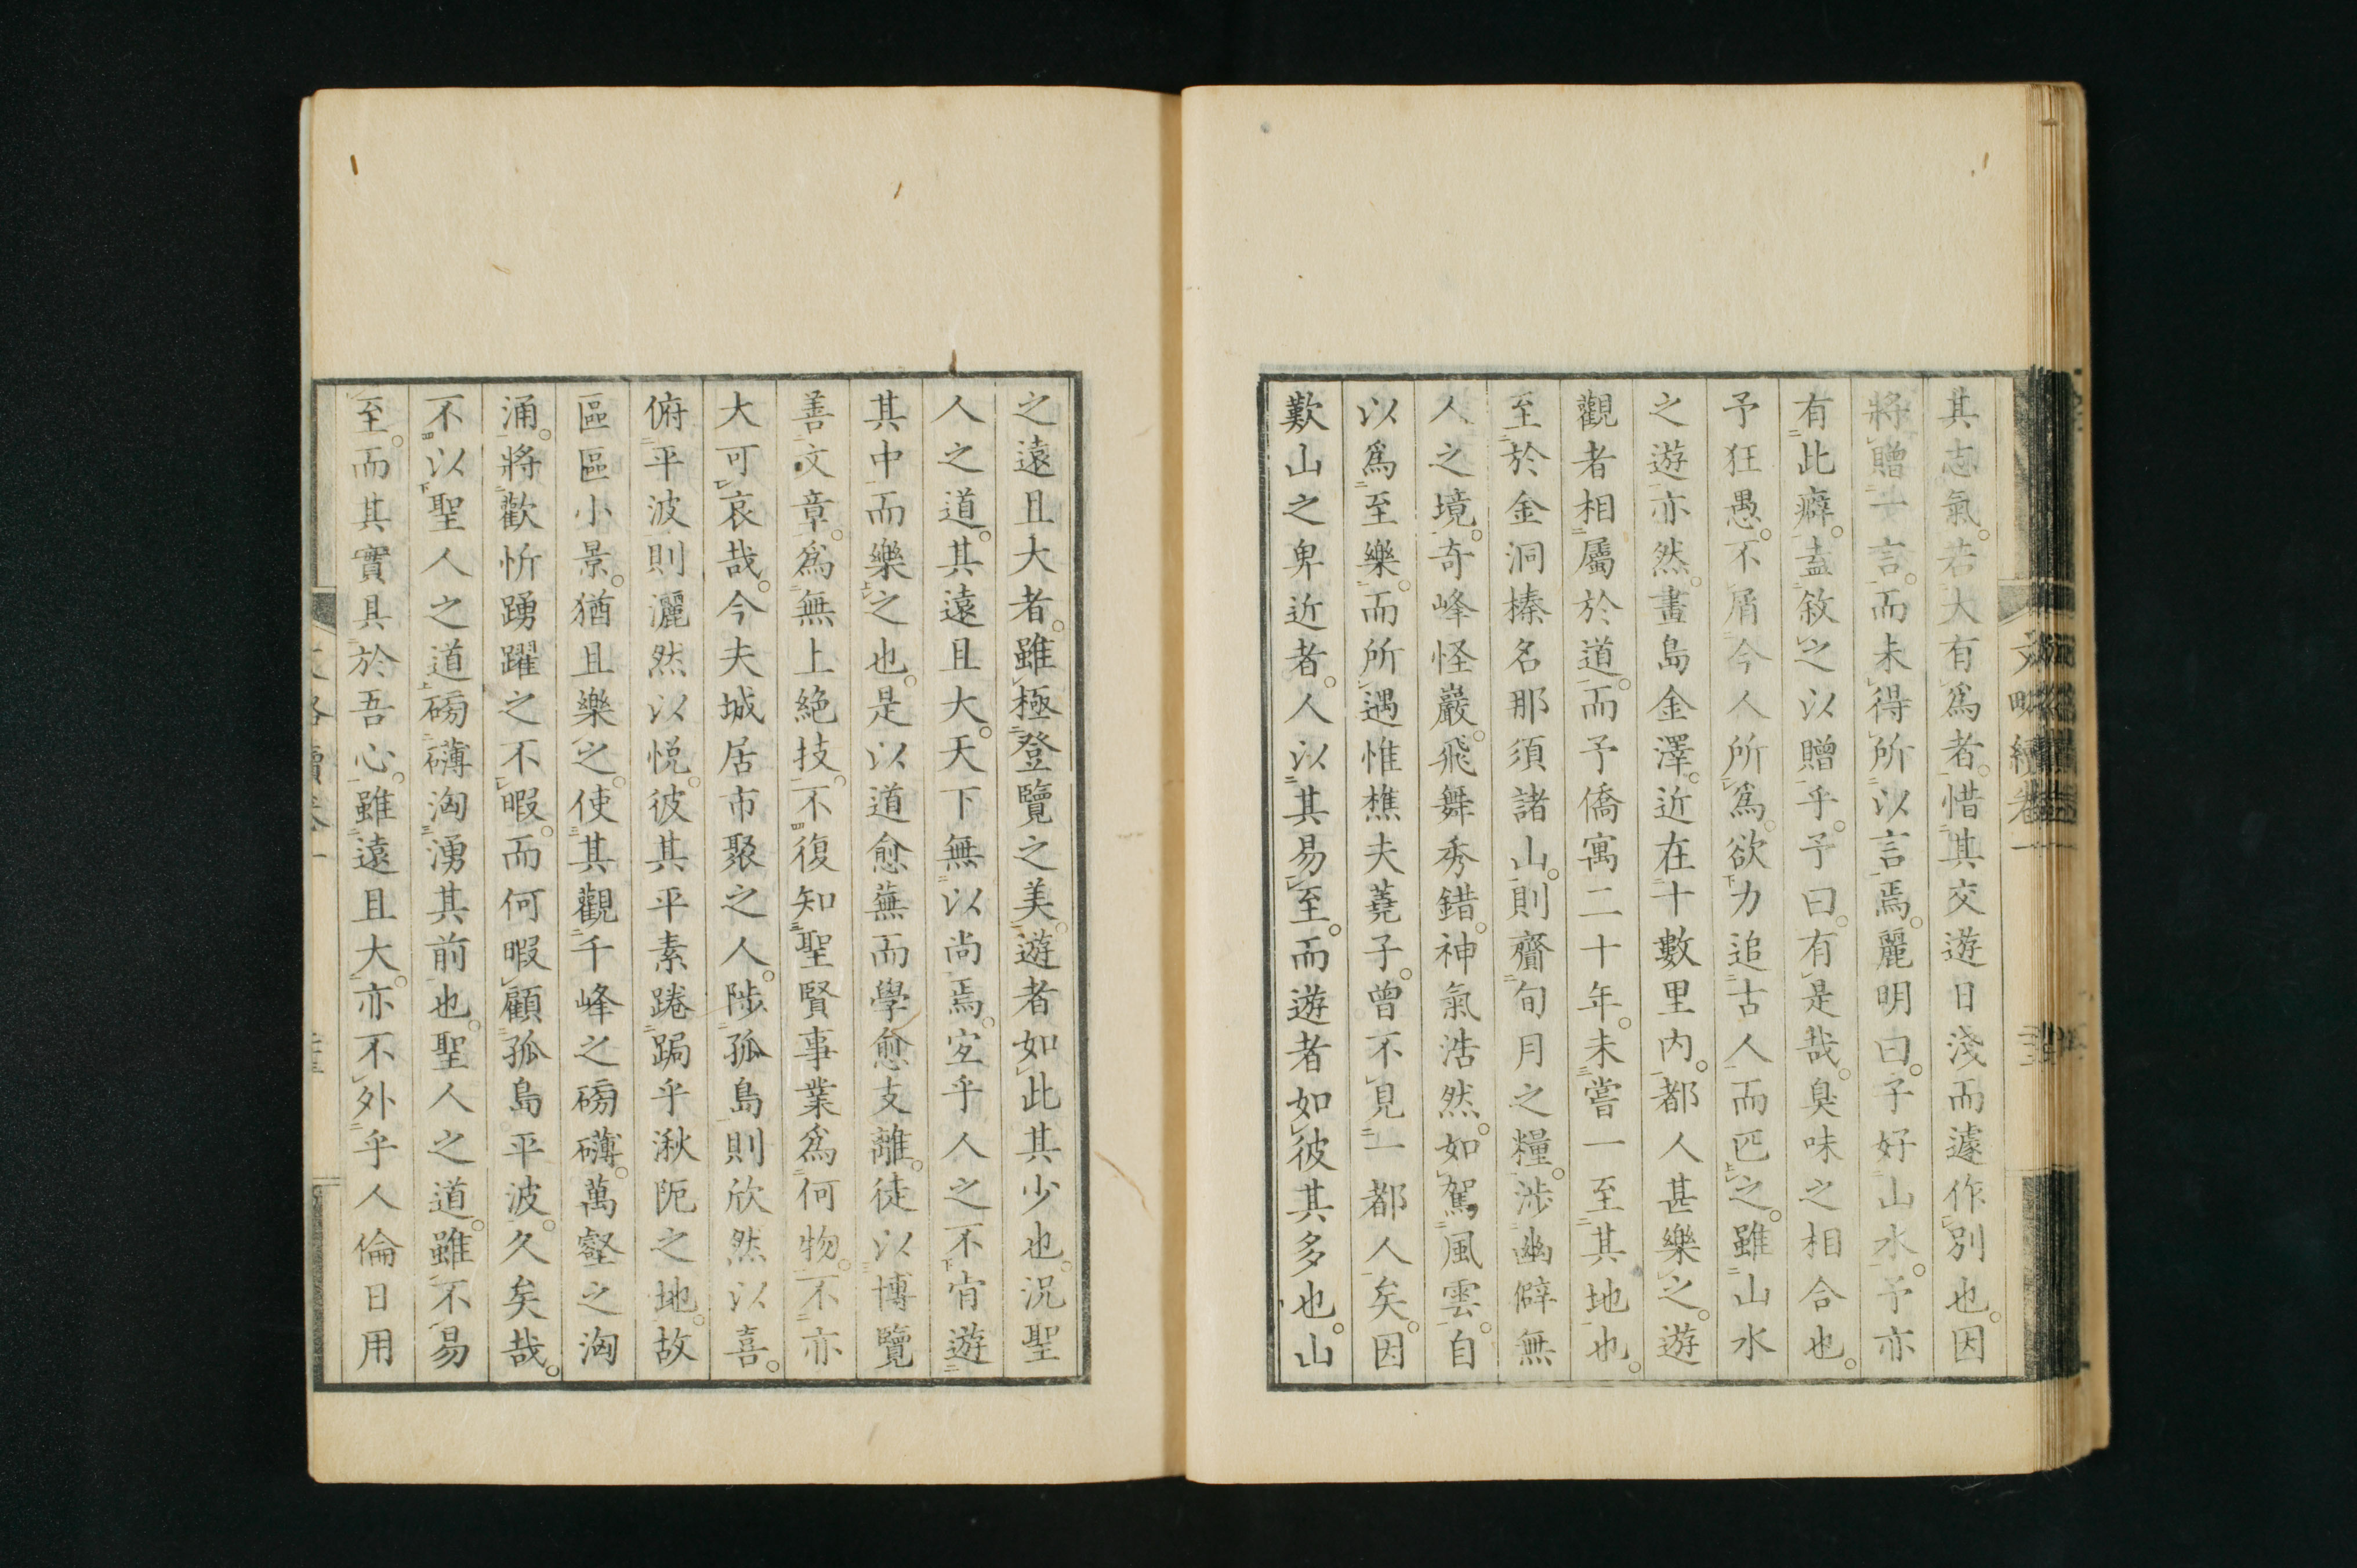 其志氣。若大有爲者。惜其交遊日淺而遽作別也。因
將贈一言。而未得所以言焉。麗明曰。子好山水。予亦
有此癖。盍敘之以贈乎。予曰。有是哉。臭味之相合也。
予狂愚。不屑今人所爲。欲力追古人而匹之。雖山水
之遊亦然。畫島金澤。近在十數里內。都人甚樂之。遊
觀者相屬於道。而予僑寓二十年。未嘗一至其地也。
至於金洞榛名那須諸山。則齎旬月之糧。涉幽僻無
人之境。奇峰怪巖。飛舞秀錯。神氣浩然。如駕風雲。自
以爲至樂。而所遇惟樵夫蕘子。曾不見一都人矣。因
歎山之卑近者。人以其易至。而遊者如彼其多也。山
之遠且大者。雖極登覽之美。遊者如此其少也。況聖
人之道。其遠且大。天下無以尚焉。宜乎人之不肯遊
其中而樂之也。是以道愈蕪而學愈支離。徒以博覽
善文章。爲無上絕技。不復知聖賢事業爲何物。不亦
大可哀哉。今夫城居市聚之人。陟孤島則欣然以喜。
俯平波則灑然以悅。彼其平素踡跼乎湫阨之地。故
區區小景。猶且樂之。使其觀千峰之磅礴。萬壑之洶
涌。將歡忻踴躍之不暇。而何暇顧孤島平波。久矣哉。
不以聖人之道磅礴洶湧其前也。聖人之道。雖不易
至。而其實具於吾心。雖遠且大。亦不外乎人倫日用